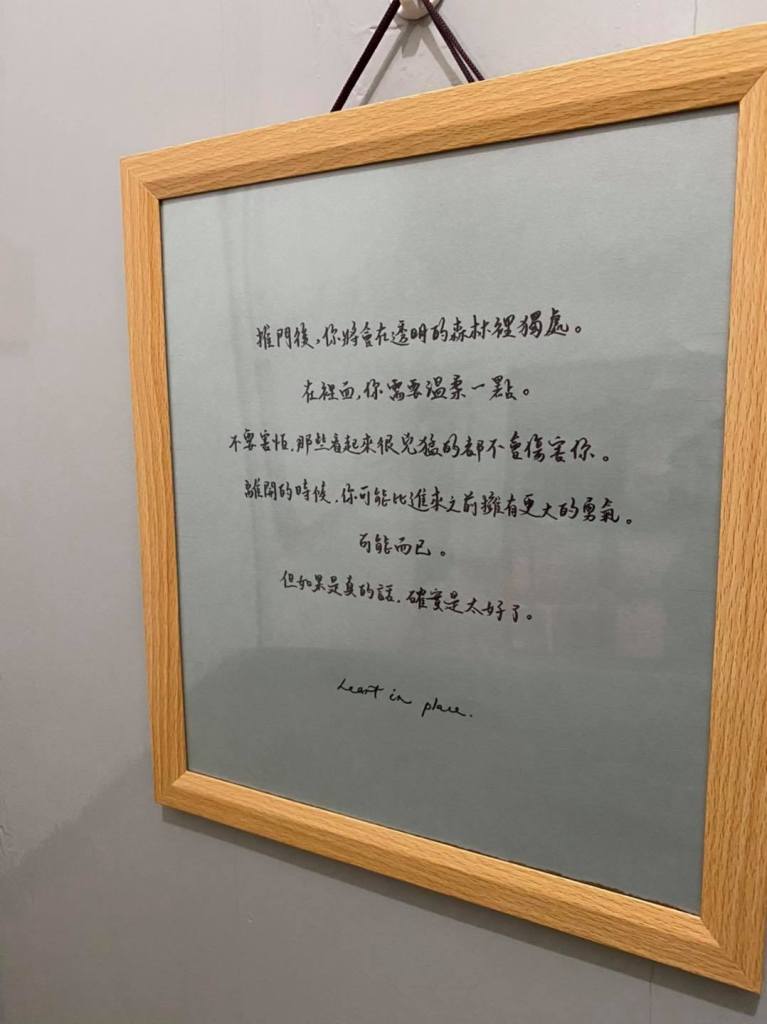 推門後，你將會在透明的森林裡獨處。
在裡面，你需要溫柔一點。
不要害怕，那些看起來很兇猛的都不會傷害你。
離開的時候，你可能比進來之前擁有更大的勇氣。
可能而已。
但如果是真的話，確實是太好了。
heart in place.